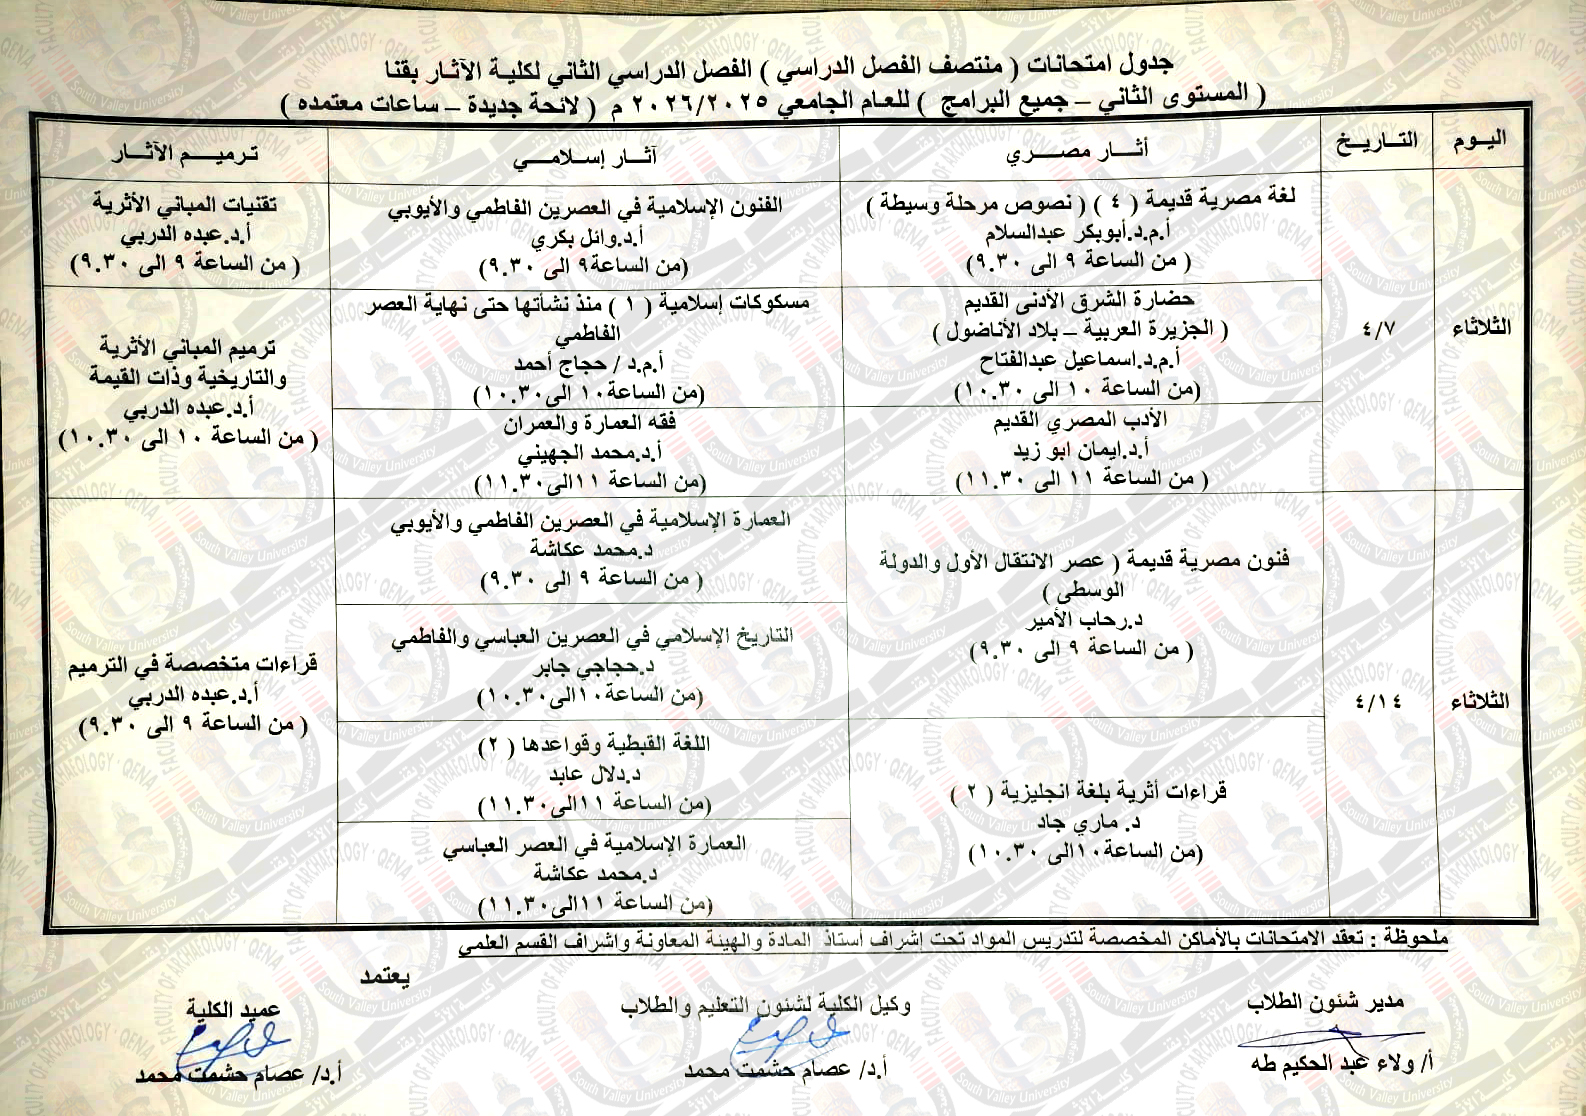 جدول امتحانات ( منتصف الفصل الدراسي ) الفصل الدراسي الثاني لكلية الآثار بقنا
( المستوى الثاني – جميع البرامج ) للعام الجامعي ٢٠٢٦/٢٠٢٥ م ( لائحة جديدة – ساعات معتمده )
اليوم
التاريخ
أثار مصري
آثار إسلامي
ترميم الآثار
الثلاثاء
٤/٧
لغة مصرية قديمة ( ٤ ) ( نصوص مرحلة وسيطة )
أ.م.د.أبوبكر عبدالسلام
( من الساعة ٩ الى ٩.٣٠ )
الفنون الإسلامية في العصرين الفاطمي والأيوبي
أ.د.وائل بكري
(من الساعة٩ الى ٩.٣٠)
تقنيات المباني الأثرية
أ.د.عبده الدربي
( من الساعة ٩ الى ٩.٣٠)
حضارة الشرق الأدنى القديم
( الجزيرة العربية – بلاد الأناضول )
أ.م.د.اسماعيل عبدالفتاح
(من الساعة ١٠ الى ١٠.٣٠)
مسكوكات إسلامية ( ١ ) منذ نشأتها حتى نهاية العصر
الفاطمي
أ.م.د / حجاج أحمد
(من الساعة١٠ الى١٠.٣٠)
ترميم المباني الأثرية
والتاريخية وذات القيمة
أ.د.عبده الدربي
( من الساعة ١٠ الى ١٠.٣٠)
الأدب المصري القديم
أ.د.ايمان ابو زيد
( من الساعة ١١ الى ١١.٣٠)
فقه العمارة والعمران
أ.د.محمد الجهيني
(من الساعة ١١الى١١.٣٠)
الثلاثاء
٤/١٤
فنون مصرية قديمة ( عصر الانتقال الأول والدولة
الوسطى )
د.رحاب الأمير
( من الساعة ٩ الى ٩.٣٠)
العمارة الإسلامية في العصرين الفاطمي والأيوبي
د.محمد عكاشة
( من الساعة ٩ الى ٩.٣٠)
التاريخ الإسلامي في العصرين العباسي والفاطمي
د.حجاجي جابر
(من الساعة١٠الى١٠.٣٠)
قراءات متخصصة في الترميم
أ.د.عبده الدربي
( من الساعة ٩ الى ٩.٣٠)
قراءات أثرية بلغة انجليزية ( ٢ )
د. ماري جاد
(من الساعة١٠الى ١٠.٣٠)
اللغة القبطية وقواعدها ( ٢)
د.دلال عابد
(من الساعة ١١الى١١.٣٠)
العمارة الإسلامية في العصر العباسي
د.محمد عكاشة
(من الساعة ١١الى١١.٣٠)
ملحوظة : تعقد الامتحانات بالأماكن المخصصة لتدريس المواد تحت إشراف أستاذ المادة والهيئة المعاونة واشراف القسم العلمي
يعتمد
مدير شئون الطلاب
وكيل الكلية لشئون التعليم والطلاب
عميد الكلية
أ/ ولاء عبد الحكيم طه
أ.د/ عصام حشمت محمد
أ.د/ عصام حشمت محمد
FACULTY OF ARCHAEOLOGY · QENA
South Valley University